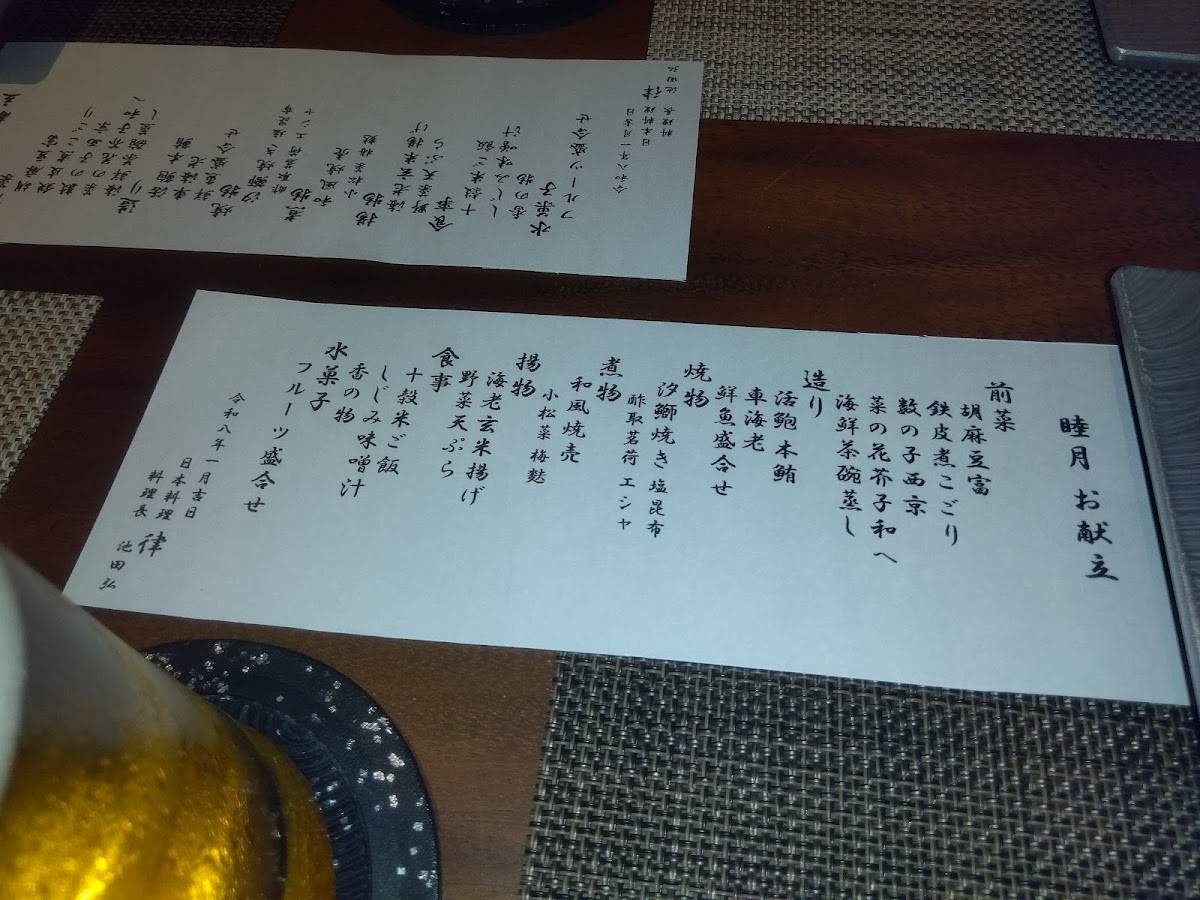 睦月 お献立
前菜
胡麻豆富
鉄皮煮こごり
数の子西京
菜の花芥子和へ
海鮮茶碗蒸し
造り
活鮑本鮪
車海老
鮮魚盛合せ
焼物
汐鰤焼き塩昆布
酢取茗荷 エシヤ
煮物
和風焼売
小松菜梅麩
揚物
海老玄米揚げ
野菜天ぷら
食事
十穀米ご飯
しじみ味噌汁
香の物
水菓子
フルーツ盛合せ
令和八年一月吉日
日本料理 律
料理長 池田弘